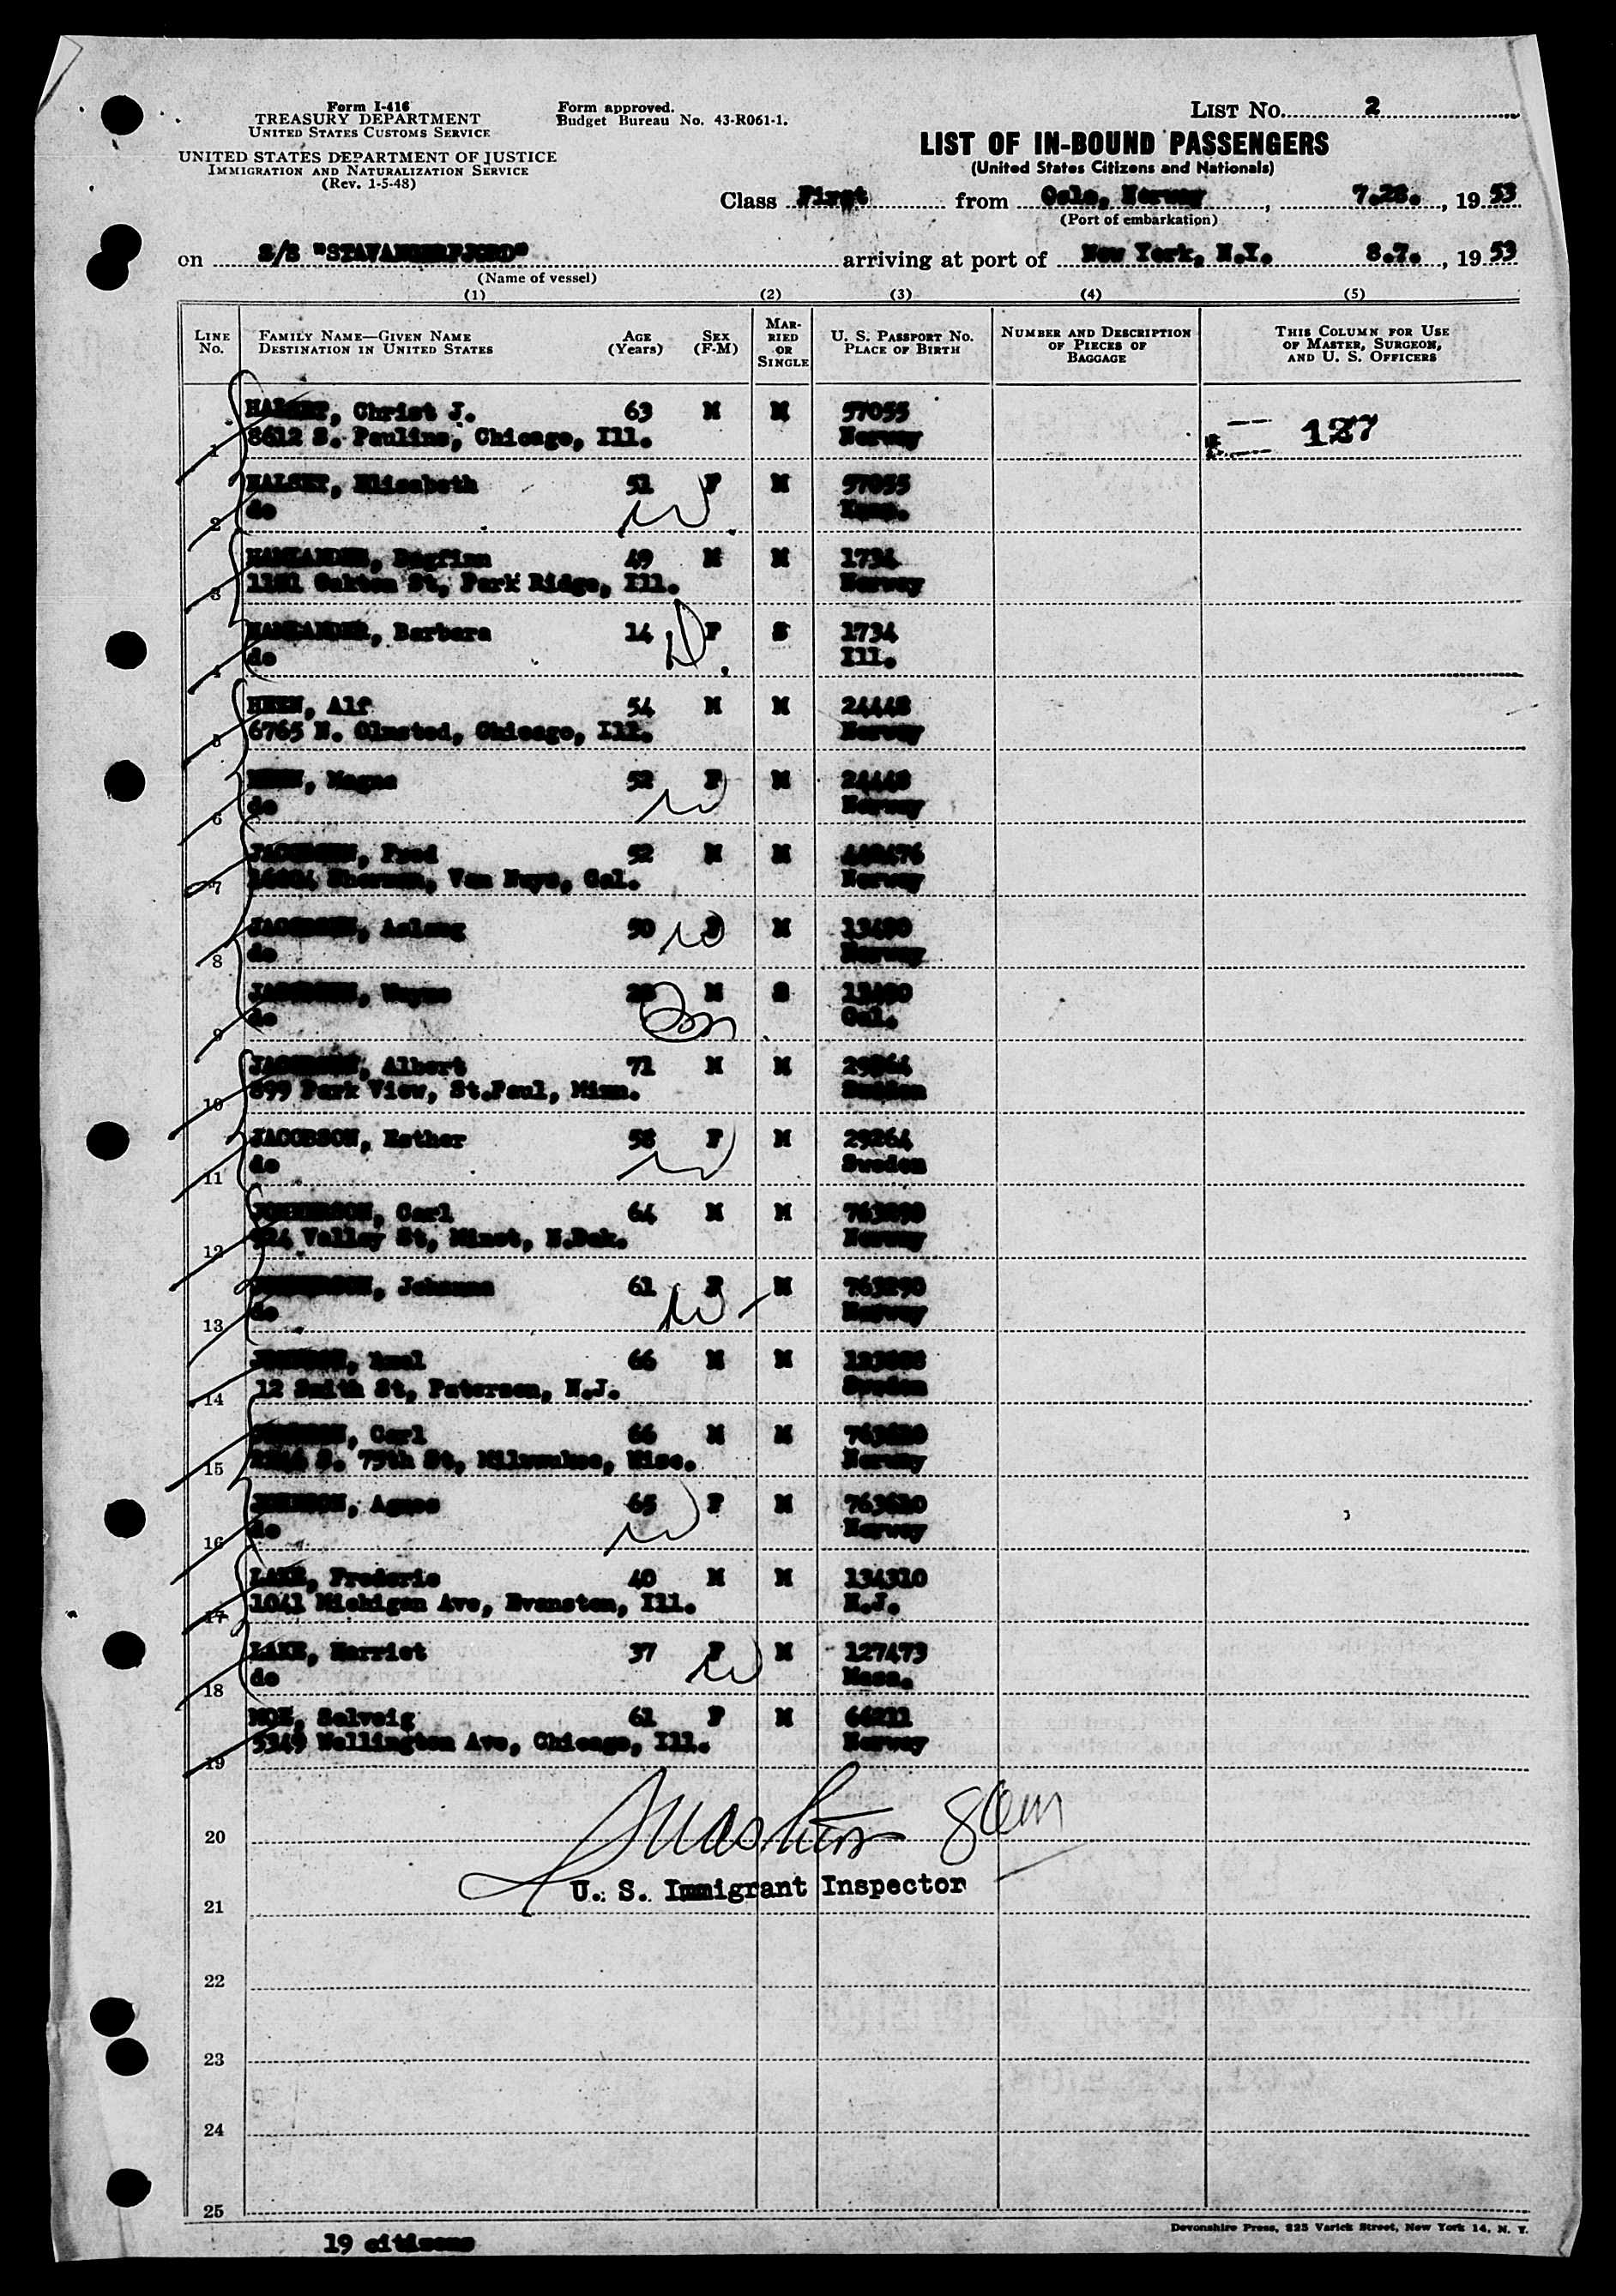 Form I-416
TREASURY DEPARTMENT
UNITED STATES CUSTOMS SERVICE
UNITED STATES DEPARTMENT OF JUSTICE
IMMIGRATION AND NATURALIZATION SERVICE
(Rev. 1-5-48)
Form approved.
Budget Bureau No. 43-R061-1.
LIST No. 2
LIST OF IN-BOUND PASSENGERS
(United States Citizens and Nationals)
Class First from Oslo, Norway, 7.28., 1953
(Port of embarkation)
on S/S "STAVANGERFJORD" arriving at port of New York, N.Y. 8.7., 1953
(Name of vessel)
(1) (2) (3) (4) (5)
LINE No. FAMILY NAME—GIVEN NAME DESTINATION IN UNITED STATES AGE (Years) SEX (F-M) MARRIED OR SINGLE U. S. PASSPORT No. PLACE OF BIRTH NUMBER AND DESCRIPTION OF PIECES OF BAGGAGE THIS COLUMN FOR USE OF MASTER, SURGEON, AND U. S. OFFICERS
HALSET, Christ J. 63 M M 57055 127
1 8612 S. Paulina, Chicago, Ill. Norway
HALSET, Elisabeth 51 F M 57055
2 do
Dagfinn 49 M M 1734
3 Oakton St, Park Ridge, Ill. Norway
Barbara 14 F S 1734
4 do Ill.
HEEN, Alf 54 M M 24448
5 6765 N. Olmsted, Chicago, Ill. Norway
HEEN, Magna 52 F M 24448
6 do Norway
JACOBSEN, Fred 52 M M
7 Sherman, Van Nuys, Cal. Norway
JACOBSEN, Aslaug 50 F M 13490
8 do Norway
JACOBSEN, Wayne M S 13490
9 do Cal.
JACOBSON, Albert 71 M M 29264
10 899 Park View, St.Paul, Minn. Sweden
JACOBSON, Esther 58 F M 29264
11 do Sweden
Carl 64 M M 763290
12 Valley St, Minot, N.Dak. Norway
Johanna 61 F M 763290
13 do Norway
Axel 66 M M
14 12 Smith St, Paterson, N.J. Sweden
JOHNSON, Carl 66 M M 763610
15 S. 75th St, Milwaukee, Wisc. Norway
JOHNSON, Agnes 65 F M 763610
16 do Norway
LAKE, Frederic 40 M M 134310
17 1041 Michigan Ave, Evanston, Ill. N.J.
LAKE, Harriet 37 F M 127473
18 do Mass.
MOE, Solveig 61 F M 66211
19 5349 Wellington Ave, Chicago, Ill. Norway
20
U. S. Immigrant Inspector
21
22
23
24
25
Devonshire Press, 225 Varick Street, New York 14, N. Y.
19 citizens